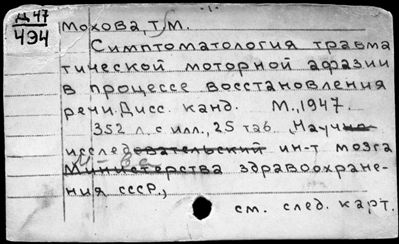 Д 47
494
Мохова, Т. М.
Симптоматология травма
тической моторной афазии
в процессе восстановления
речи. Дисс. канд. М., 1947.
352 л. с илл., 25 таб. Научно
исследовательский ин-т мозга
М-ва
Министерства здравоохране-
ния СССР.,
см. след. карт.